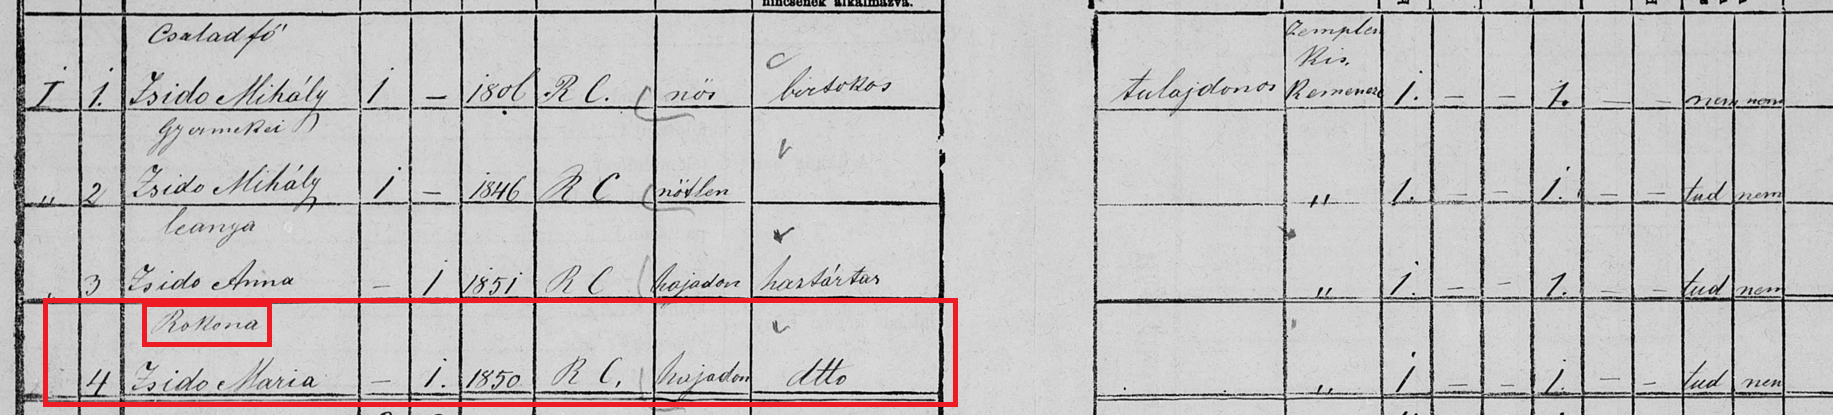 nincsenek alkalmazva.
Családfő Zemplen
Kis.
I 1. Zsido Mihály 1 — 1806 R C. nős birtokos tulajdonos Kemencze 1. — — 1. — — nem nem
Gyermekei
„ 2 Zsido Mihály 1 — 1846 R C nőtlen „ 1. — — 1. — — tud nem
leanya
„ 3 Zsido Anna — 1 1851 R C hajadon háztartás „ 1. — — 1. — — tud nem
Rokona
4 Zsido Maria — 1. 1850 R C. hajadon dtto „ 1 — — 1. — — tud nem